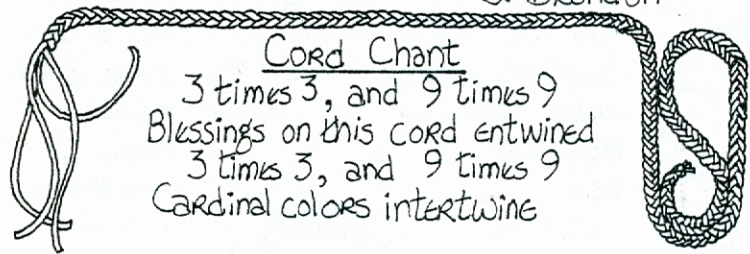 Cord Chant
3 times 3, and 9 times 9
Blessings on this cord entwined
3 times 3, and 9 times 9
Cardinal colors intertwine